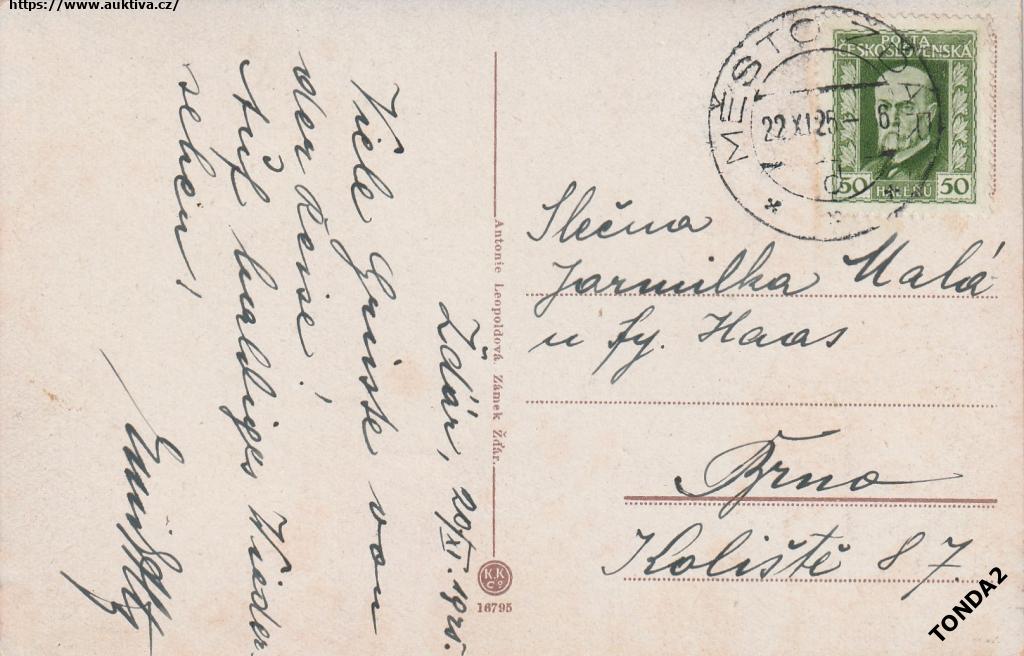 https://www.auktiva.cz/
Ždár, 20/XI. 1925.
Viele Grüsse von
der Reise!
Auf baldiges Wieder-
sehen,
Antonie Leopoldová, Zámek Žďár.
K.K
Co
16795
POŠTA
ČESKOSLOVENSKÁ
50 HALÉŘŮ 50
MĚSTO ŽĎÁR
22 XI 25
Slečna
Jarmilka Malá
u fy. Haas
Brno
Koliště 87.
TONDA2